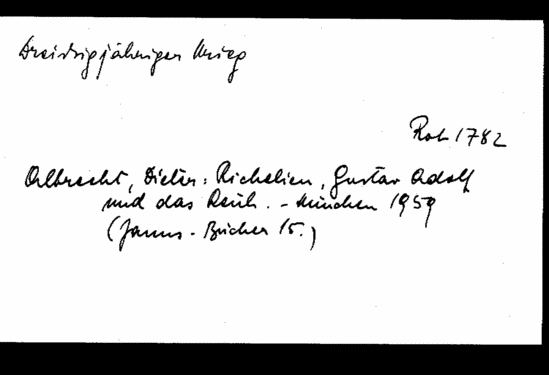 Dreissigjähriger Krieg
Rot 1782
Albrecht, Dieter: Richelieu, Gustav Adolf
und das Reich. - München 1959
(Janus-Bücher 15.)